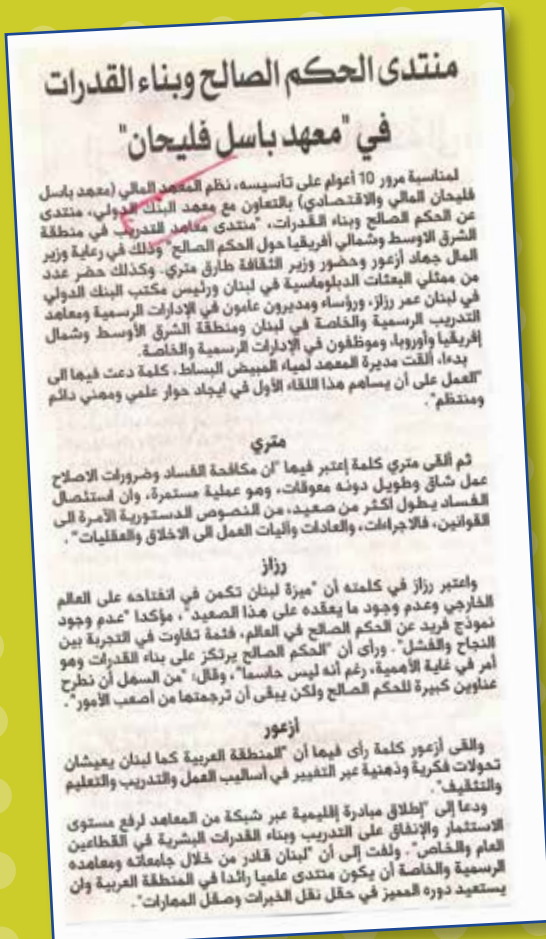 منتدى الحكم الصالح وبناء القدرات
في "معهد باسل فليحان"
لمناسبة مرور 10 أعوام على تأسيسه، نظم المعهد المالي (معهد باسل
فليحان المالي والاقتصادي) بالتعاون مع معهد البنك الدولي، منتدى
عن الحكم الصالح وبناء القدرات، "منتدى معاهد التدريب في منطقة
الشرق الاوسط وشمالي أفريقيا حول الحكم الصالح" وذلك في رعاية وزير
المال جهاد أزعور وحضور وزير الثقافة طارق متري. وكذلك حضر عدد
من ممثلي البعثات الدبلوماسية في لبنان ورئيس مكتب البنك الدولي
في لبنان عمر رزاز، ورؤساء ومديرون عامون في الإدارات الرسمية ومعاهد
التدريب الرسمية والخاصة في لبنان ومنطقة الشرق الأوسط وشمال
إفريقيا وأوروبا، وموظفون في الإدارات الرسمية والخاصة.
بدءا، ألقت مديرة المعهد لمياء المبيض البساط، كلمة دعت فيها الى
"العمل على أن يساهم هذا اللقاء الأول في ايجاد حوار علمي ومهني دائم
ومنتظم".
متري
ثم ألقى متري كلمة إعتبر فيها "ان مكافحة الفساد وضرورات الاصلاح
عمل شاق وطويل دونه معوقات، وهو عملية مستمرة، وان استئصال
الفساد يطول اكثر من صعيد، من النصوص الدستورية الآمرة الى
القوانين، فالاجراءات، والعادات وآليات العمل الى الاخلاق والعقليات".
رزاز
واعتبر رزاز في كلمته أن "ميزة لبنان تكمن في انفتاحه على العالم
الخارجي وعدم وجود ما يعقده على هذا الصعيد"، مؤكدا "عدم وجود
نموذج فريد عن الحكم الصالح في العالم، فثمة تفاوت في التجربة بين
النجاح والفشل". ورأى أن "الحكم الصالح يرتكز على بناء القدرات وهو
أمر في غاية الأهمية، رغم أنه ليس حاسما"، وقال: "من السهل أن نطرح
عناوين كبيرة للحكم الصالح ولكن يبقى أن ترجمتها من أصعب الأمور".
أزعور
والقى أزعور كلمة رأى فيها أن "المنطقة العربية كما لبنان يعيشان
تحولات فكرية وذهنية عبر التغيير في أساليب العمل والتدريب والتعليم
والتثقيف".
ودعا إلى "إطلاق مبادرة إقليمية عبر شبكة من المعاهد لرفع مستوى
الاستثمار والإنفاق على التدريب وبناء القدرات البشرية في القطاعين
العام والخاص". ولفت إلى أن "لبنان قادر من خلال جامعاته ومعاهده
الرسمية والخاصة أن يكون منتدى علميا رائدا في المنطقة العربية وان
يستعيد دوره المميز في حقل نقل الخبرات وصقل المهارات".